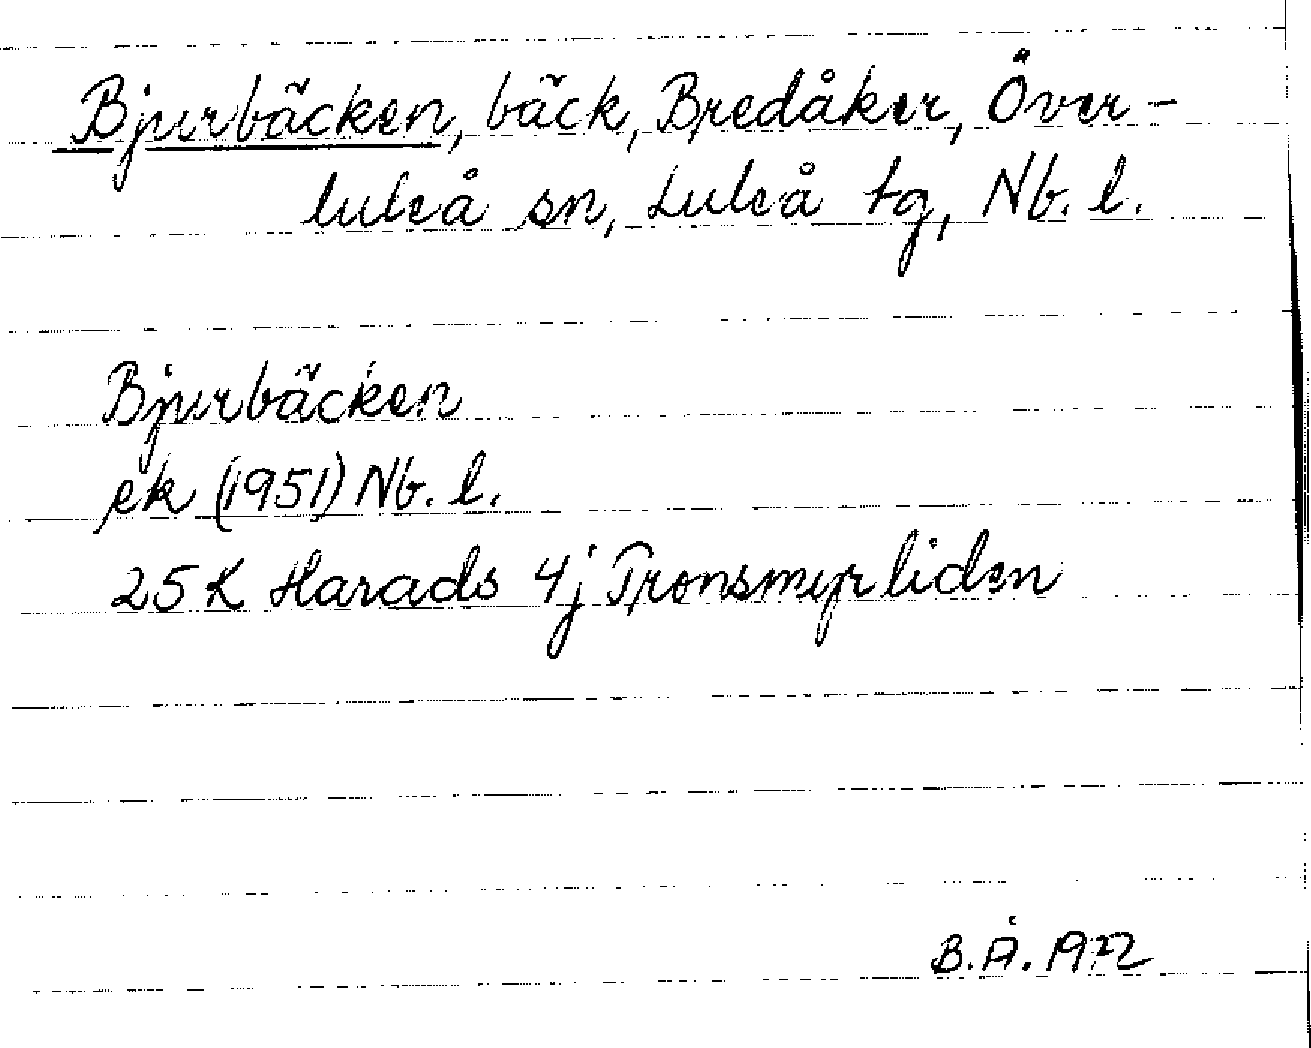 Bjurbäcken, bäck, Bredåker, Över-
luleå sn, Luleå tg, Nb. l.
Bjurbäcken
ek (1951) Nb. l.
25K Harads 4j Tronsmyrliden
B.Å. 1972